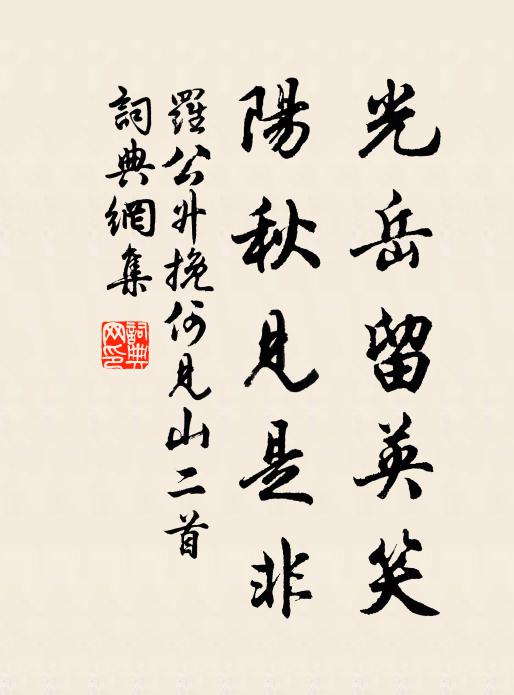 光岳留英笑
陽秋見是非
羅公升挽何見山二首
詞典網集
詞典網印